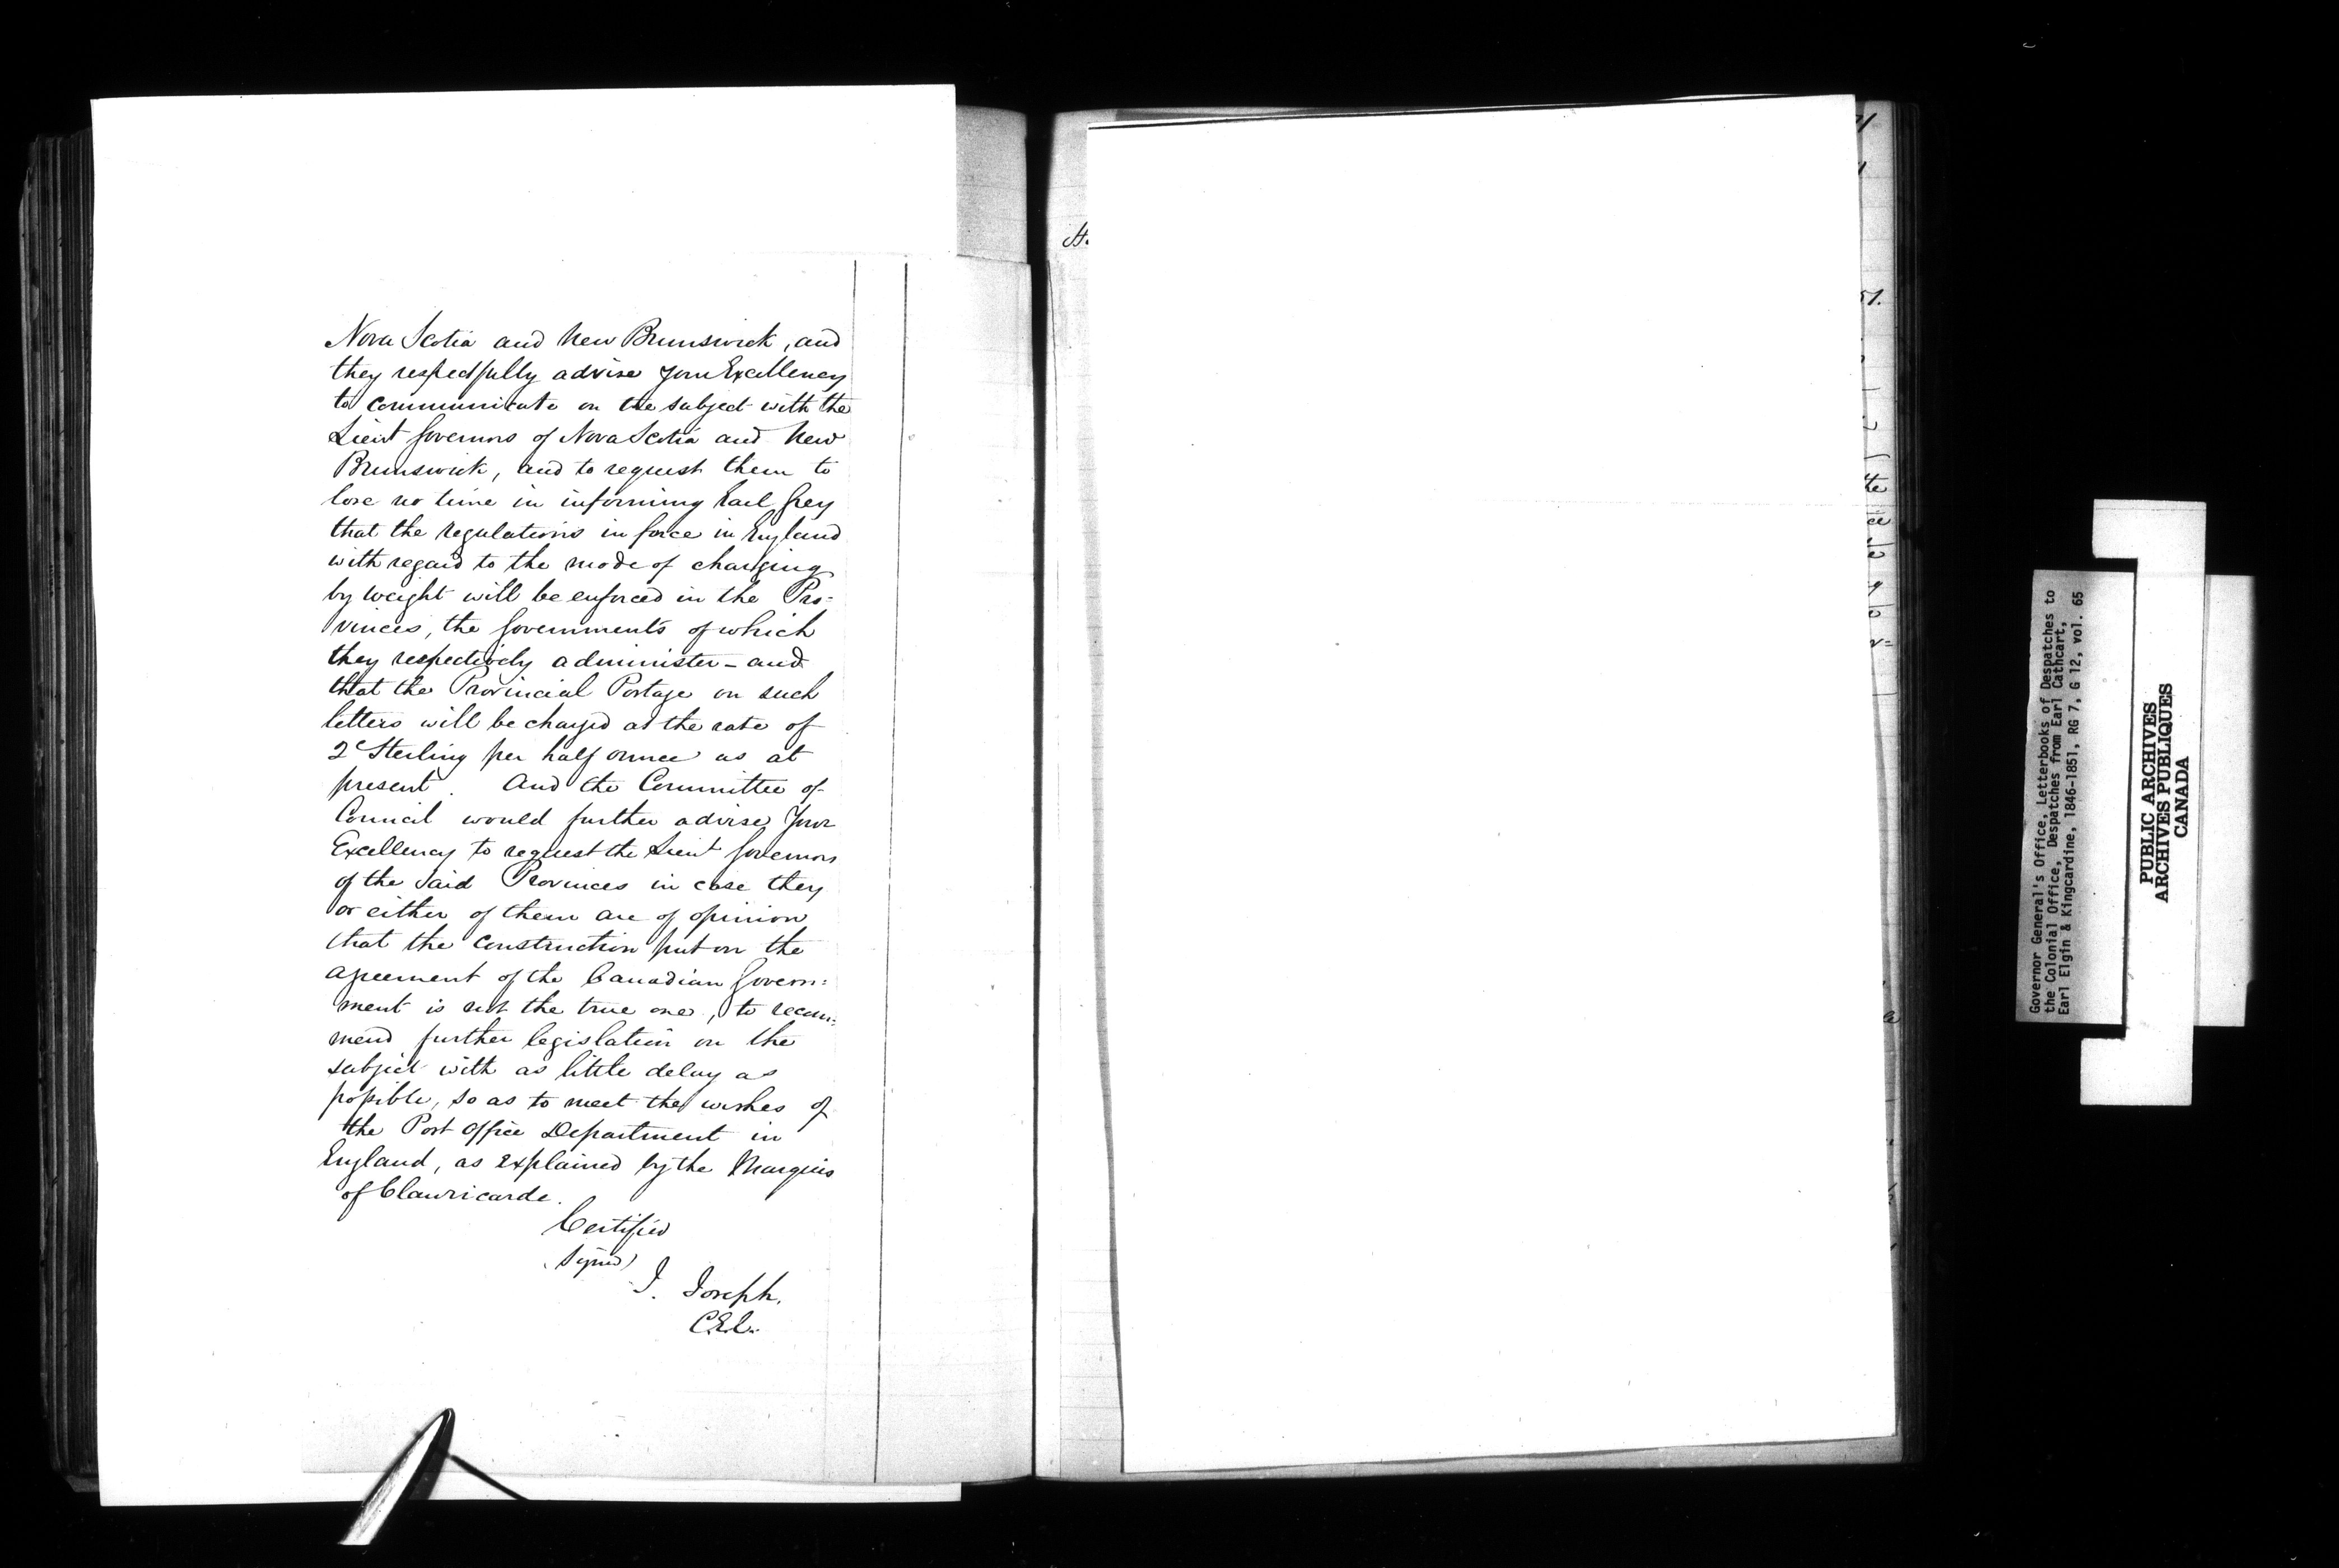 Nova Scotia and New Brunswick, and
they respectfully advise your Excellency
to communicate on the subject with the
Lieut Governors of Nova Scotia and New
Brunswick, and to request them to
lose no time in informing Earl Grey
that the regulations in force in England
with regard to the mode of charging
by weight will be enforced in the Pro=
vinces, the Governments of which
they respectively administer – and
that the Provincial Postage on such
letters will be charged at the rate of
2d Sterling per half ounce as at
present. And the Committee of
Council would further advise Your
Excellency to request the Lieut Governors
of the said Provinces in case they
or either of them are of opinion
that the construction put on the
agreement of the Canadian Govern=
ment is not the true one, to recom=
mend further legislation on the
subject with as little delay as
possible, so as to meet the wishes of
the Post Office Department in
England, as explained by the Marquis
of Clanricarde.
Certified
(Signed)
J. Joseph.
C.E.C.
H.
51.
the
Governor General's Office, Letterbooks of Despatches to
the Colonial Office, Despatches from Earl Cathcart,
Earl Elgin & Kingcardine, 1846-1851, RG 7, G 12, vol. 65
PUBLIC ARCHIVES
ARCHIVES PUBLIQUES
CANADA